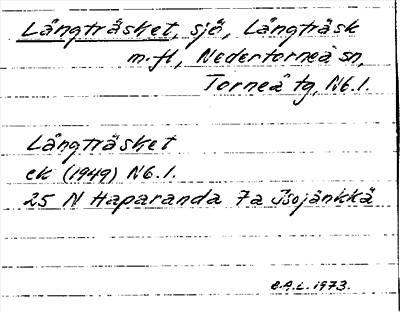 Långträsket, sjö, Långträsk
m. fl, Nedertorneå sn,
Torneå tg, Nb. l.
Långträsket
ek (1949) Nb. l.
25 N Haparanda 7a Isojänkkä
E.A.L. 1973.